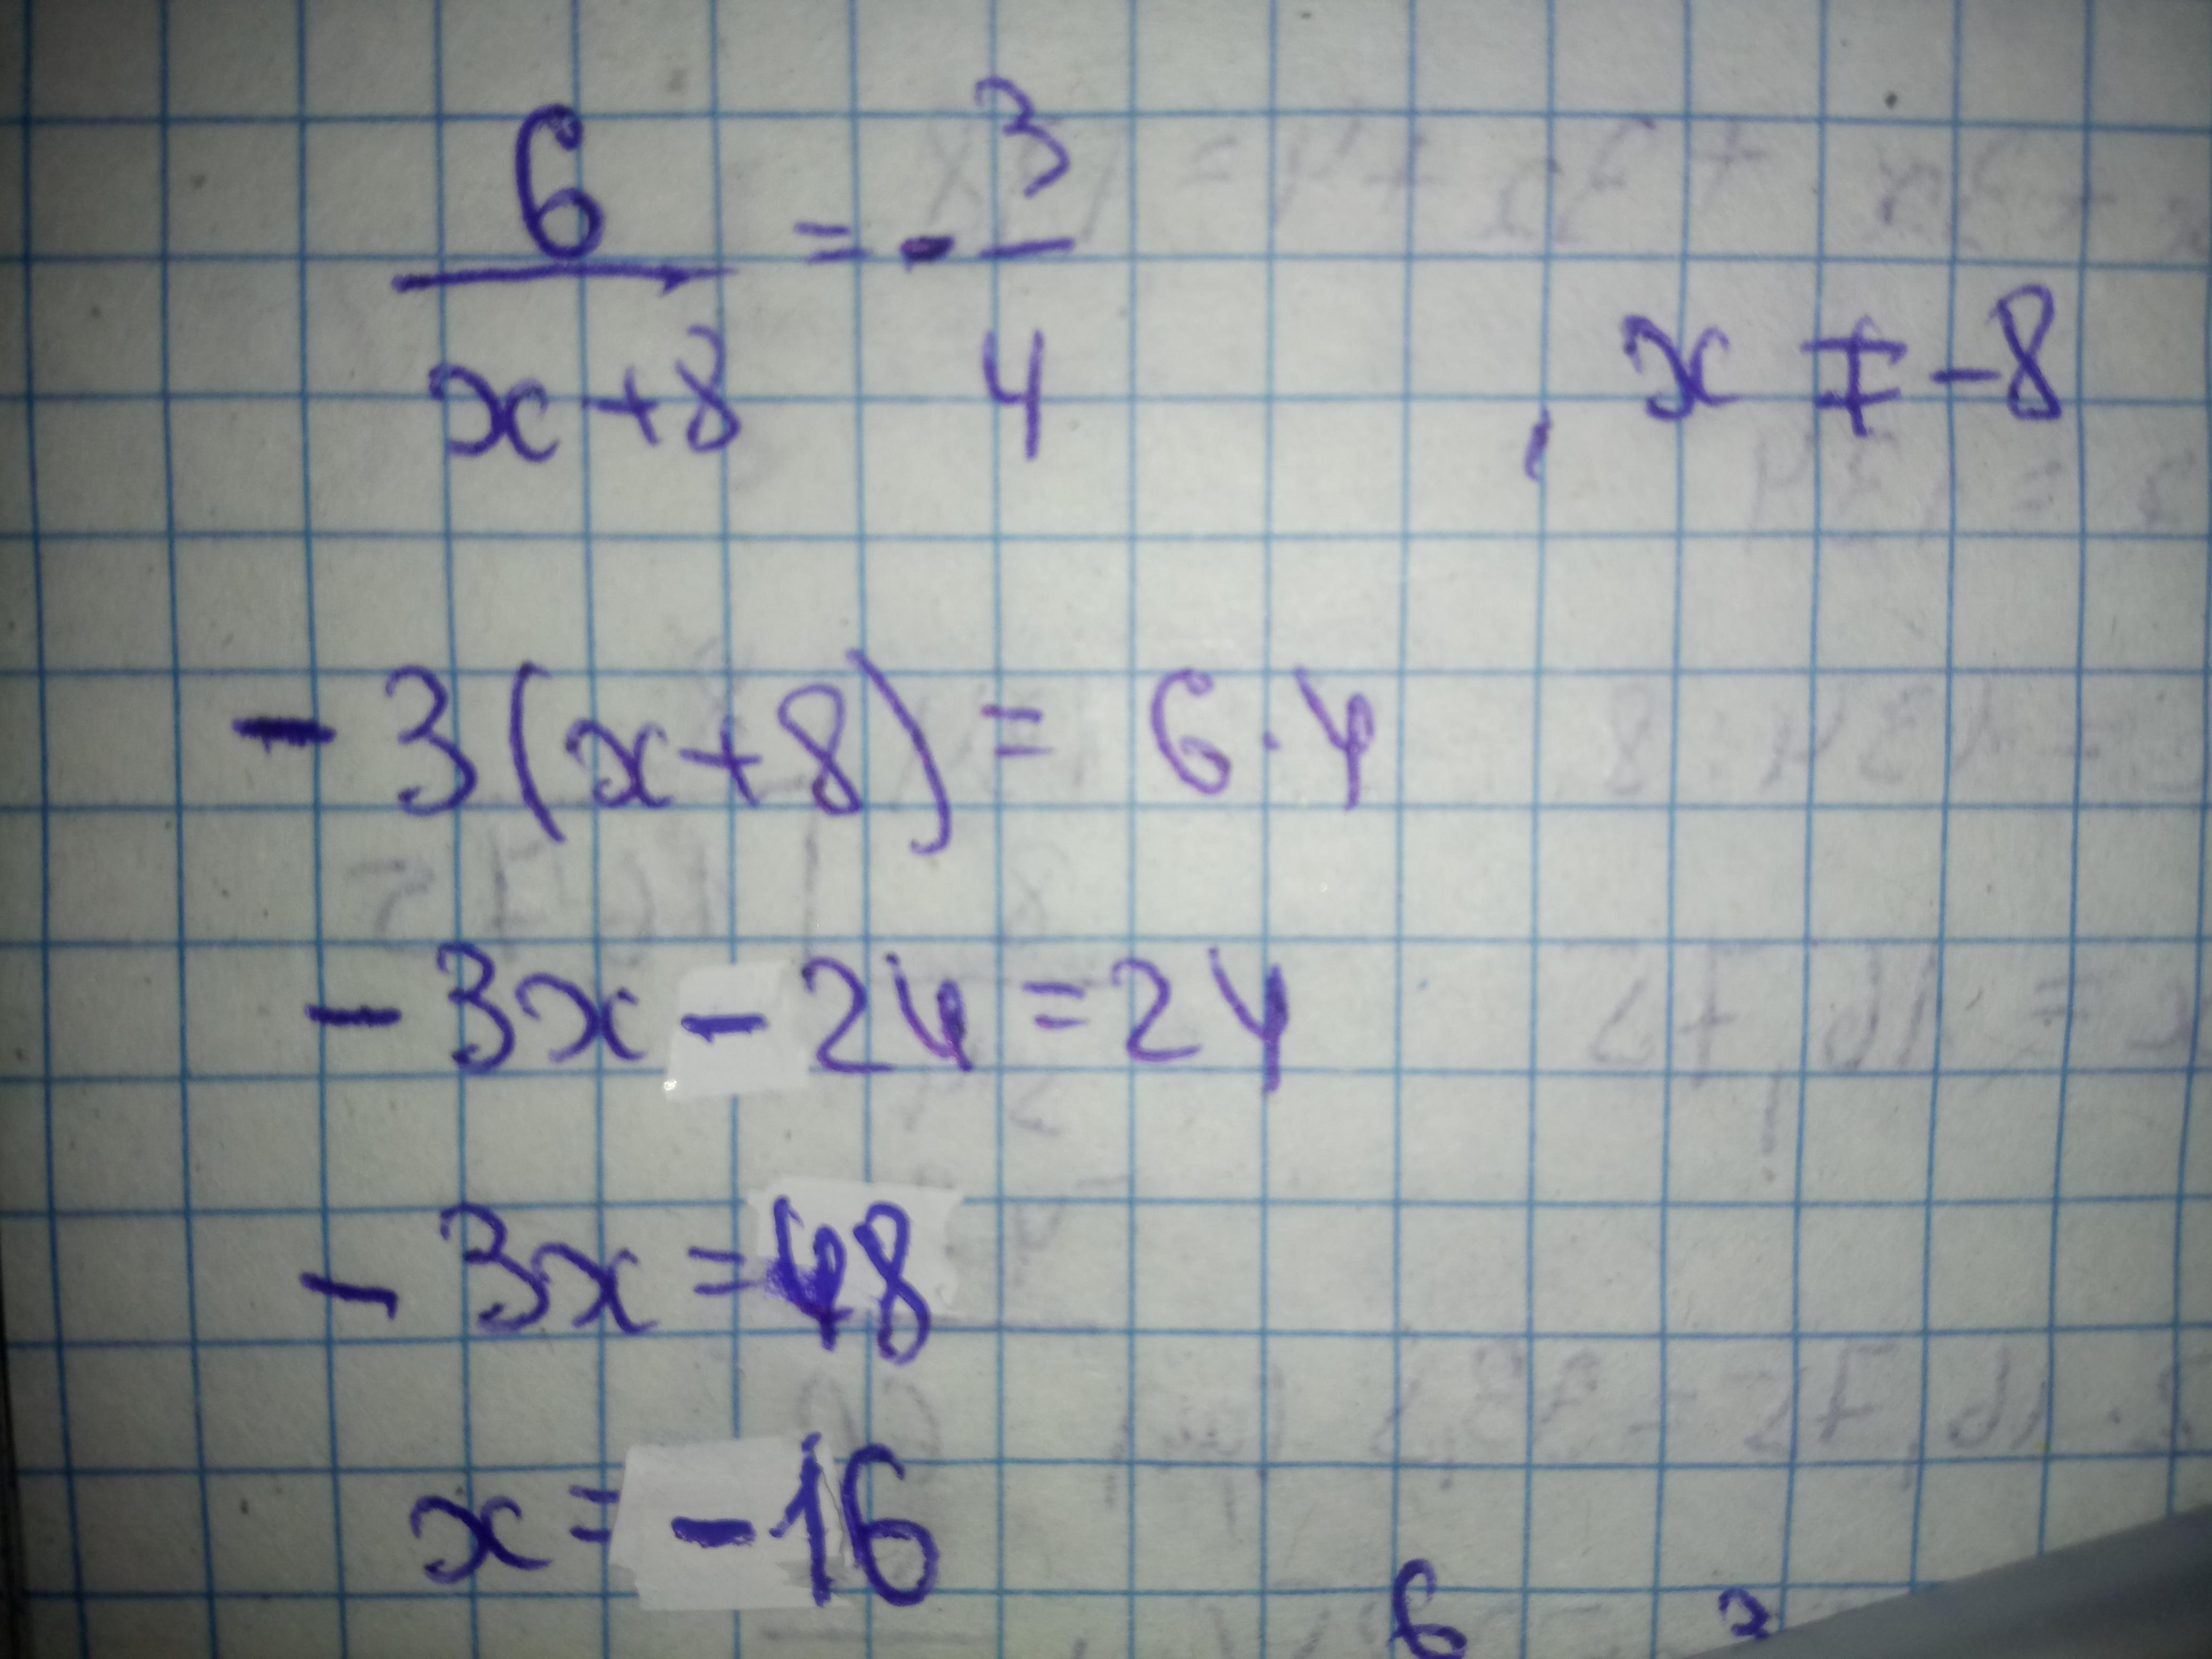 6/(x+8) = -3/4 , x ≠ -8
-3(x+8) = 6·4
-3x - 24 = 24
-3x = 48
x = -16
6